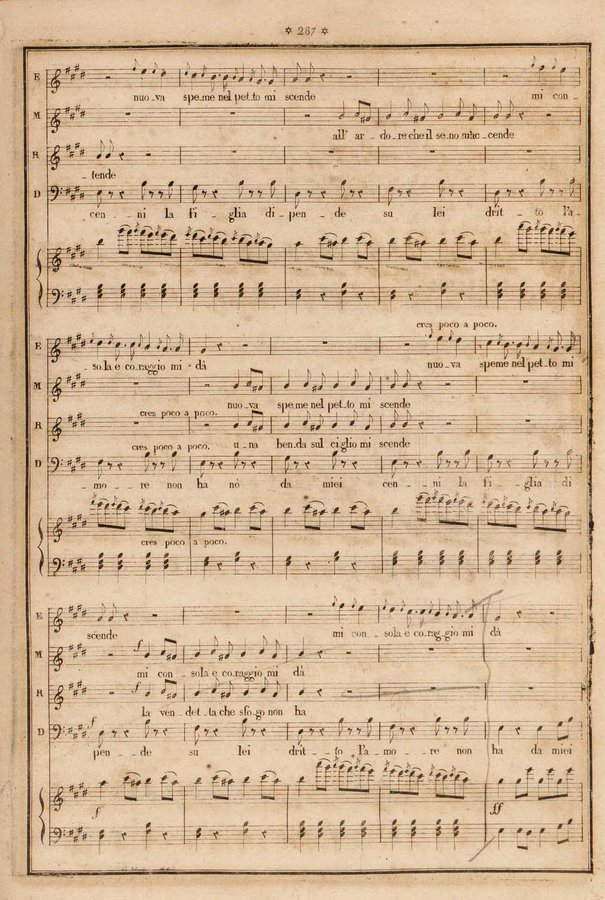 ✡ 267 ✡
E
nuo-va spe-me nel pet-to mi scende mi con-
M
all' ar-do-re che il se-no m'ac-cende
R
tende
D
cen-ni la fi-glia di-pen-de su lei drit-to l'a-
cres poco a poco.
E
sola e co-raggio mi-dà nuo-va speme nel pet-to mi
M
nuo-va spe-me nel pet-to mi scende
cres poco a poco.
R
cres poco a poco. u-na ben-da sul ciglio mi scende
D
mo-re non ha nò da miei cen-ni la fi-glia di
cres poco a poco.
E
scende mi con-sola e co-rag-gio mi dà
M
f
mi con-sola e co-raggio mi dà
R
f
la ven-det-ta che sfo-go non ha
D
f
pen-de su lei drit-to l'a-mo-re non ha da miei
f ff